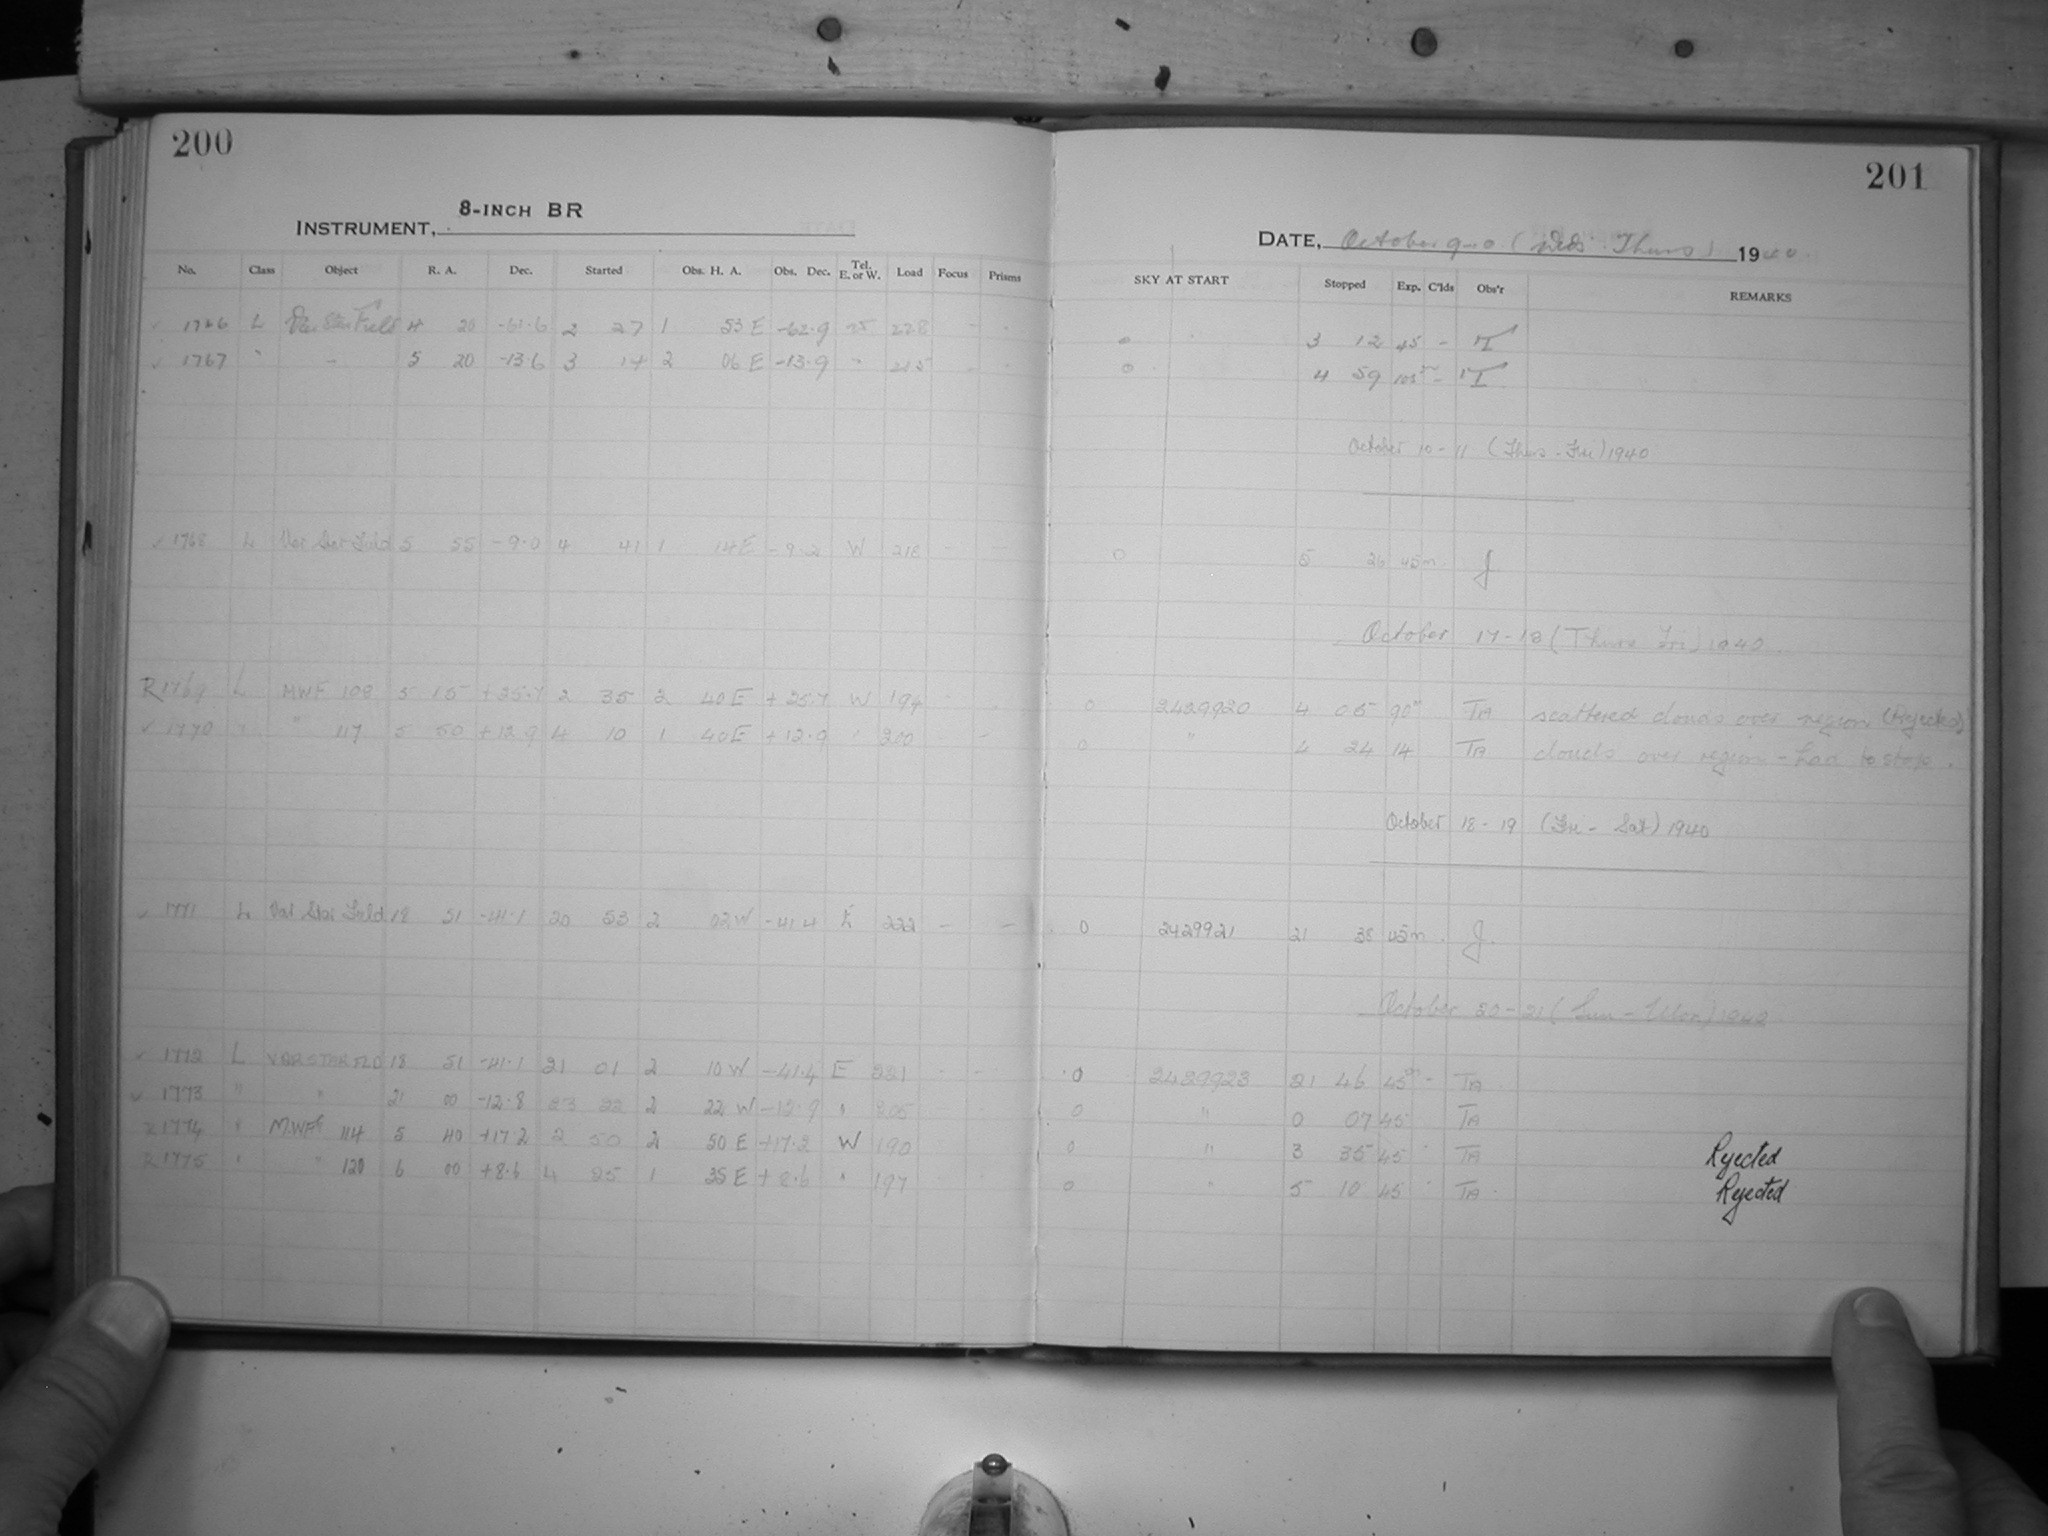 200
201
8-INCH BR
INSTRUMENT,
DATE, October 9-10 (Wed. Thurs) 1940
No. Class Object R. A. Dec. Started Obs. H. A. Obs. Dec. Tel. E. or W. Load Focus Prisms SKY AT START Stopped Exp. C'lds Obs'r REMARKS
1766 L Var Star Field 4 20 2 27 1 53 E -62.9 228 3 12 45 - T
1767 " - 5 20 -13.6 3 14 2 06 E -13.9 " 215 0 4 59 105 m - T
October 10-11 (Thurs - Fri) 1940
✓ 1768 L Var Star Field 5 55 -9.0 4 41 1 14 E -9.2 W 218 - - 0 5 26 45m J.
October 17-18 (Thurs Fri) 1940.
R 1769 L MWF 108 5 15 +25.7 2 35 2 40 E +25.7 W 194 0 2429920 4 05 90m TA scattered clouds over region (Rejected)
✓ 1770 " " 117 5 50 +12.9 4 10 1 40 E +12.9 " 200 - 0 " 4 24 14 TA clouds over region - had to stop.
October 18-19 (Fri - Sat) 1940
✓ 1771 L Var Star Field 18 51 -41.1 20 53 2 02 W -41.4 E 222 - - 0 2429921 21 38 45m. J.
October 20-21 (Sun - Mon) 1940
✓ 1772 L VAR STAR FLD 18 51 -41.1 21 01 2 10 W -41.4 E 221 - - 0 2429923 21 46 45m - TA
✓ 1773 " " 21 00 -12.8 23 22 2 22 W -12.9 " 205 0 " 0 07 45 TA
R 1774 " MWF 114 5 40 +17.2 2 50 2 50 E +17.2 W 190 0 " 3 35 45 TA Rejected
R 1775 " " 120 6 00 +8.6 4 25 1 35 E +8.6 " 197 0 " 5 10 45 TA Rejected